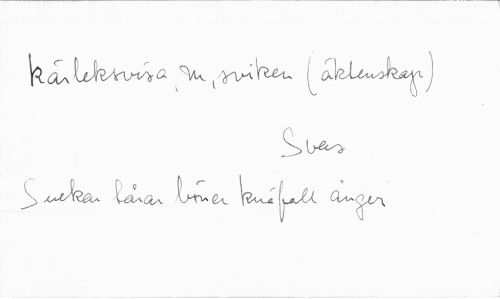 kärleksvisa, m, sviken (äktenskap)
Svar
Suckar tårar böner knäfall ånger